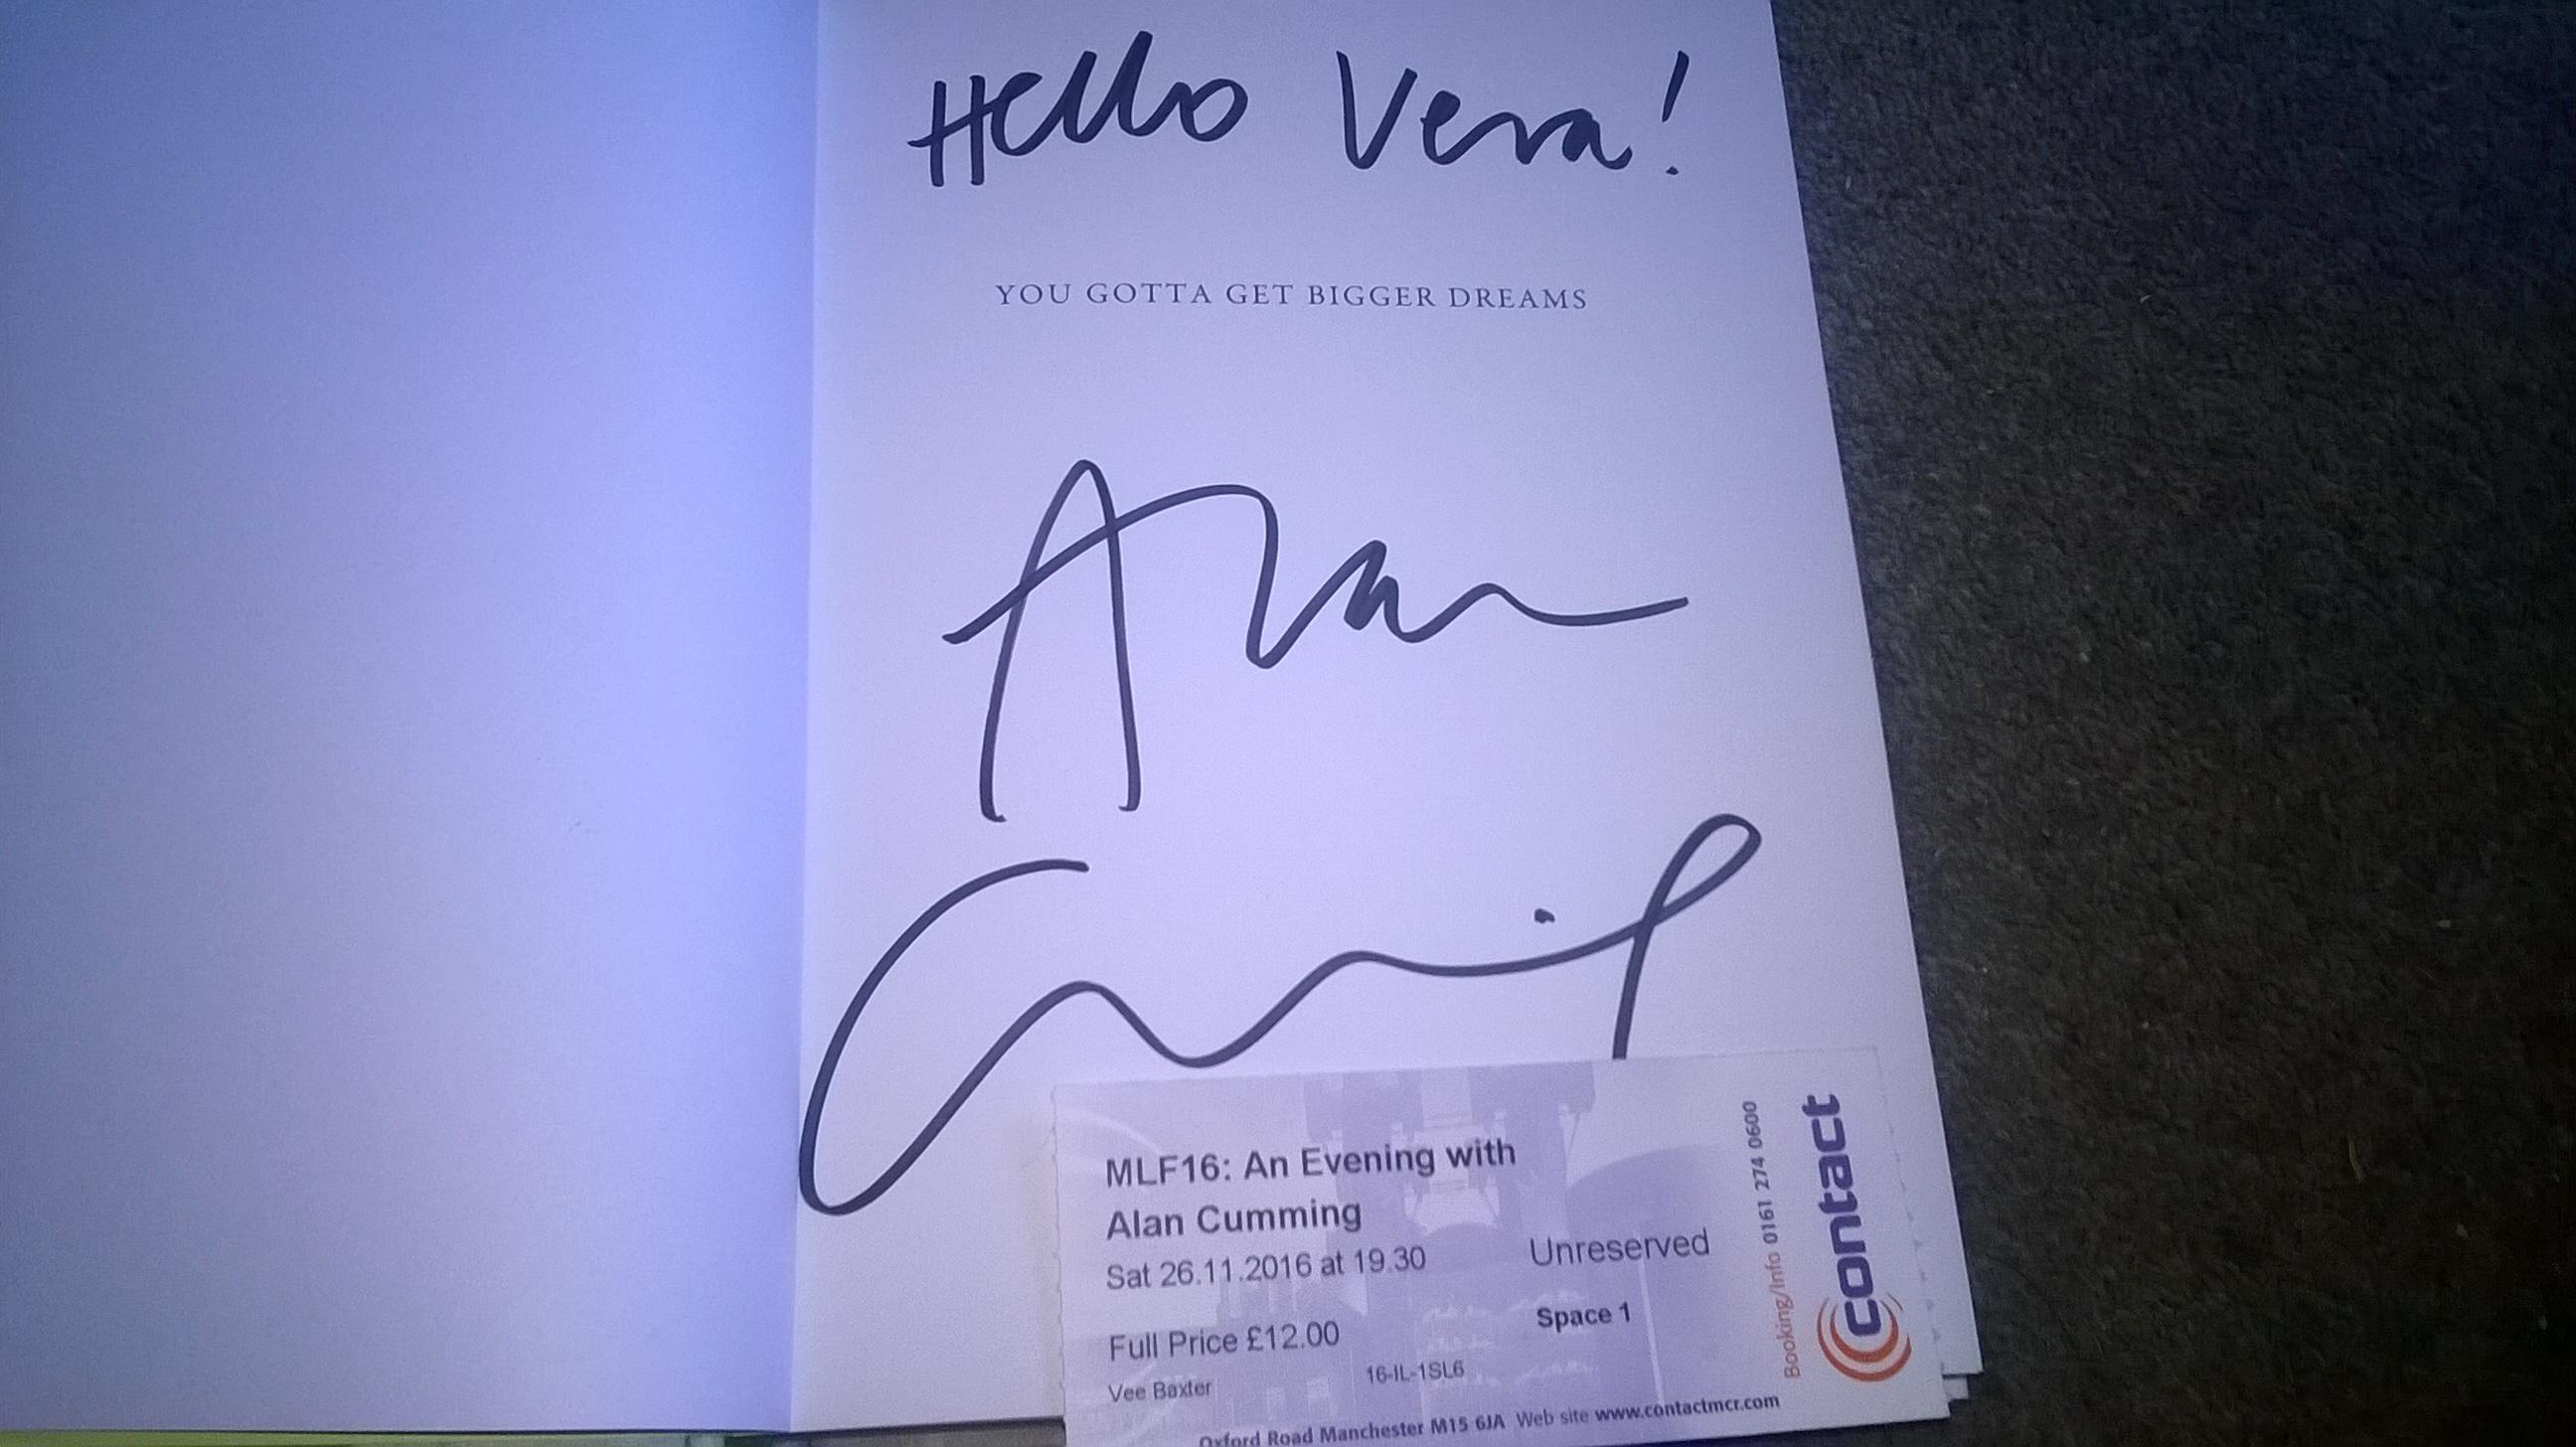 Hello Vera!
YOU GOTTA GET BIGGER DREAMS
Alan
Cumming
MLF16: An Evening with
Alan Cumming
Sat 26.11.2016 at 19.30
Unreserved
Full Price £12.00
Space 1
Vee Baxter
16-IL-1SL6
Oxford Road Manchester M15 6JA Web site www.contactmcr.com
Booking/Info 0161 274 0600
contact